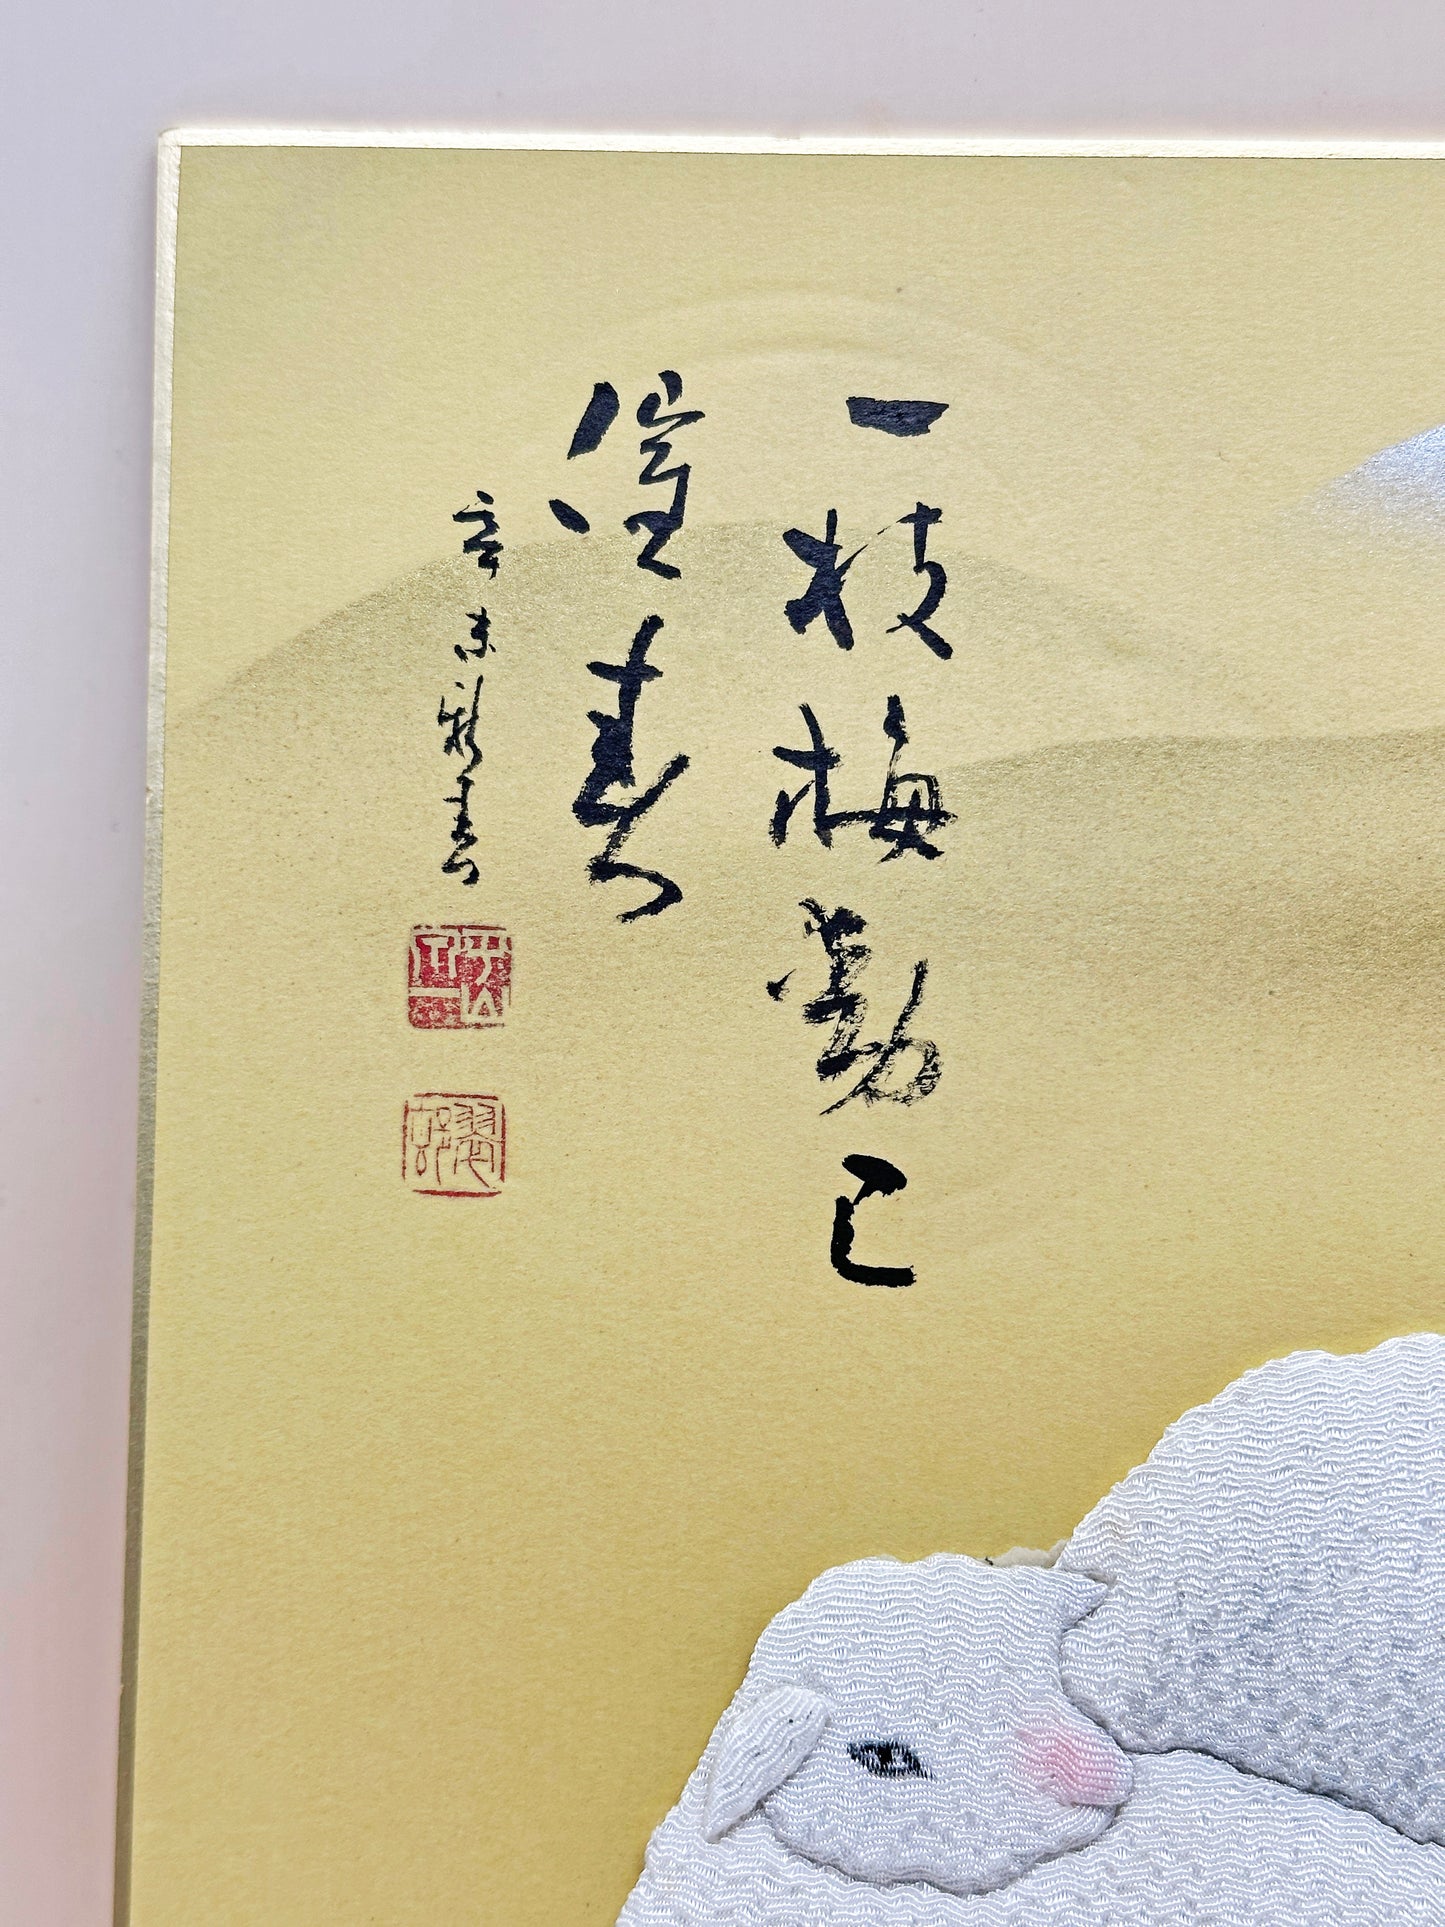 一枝梅動已
催春
辛未